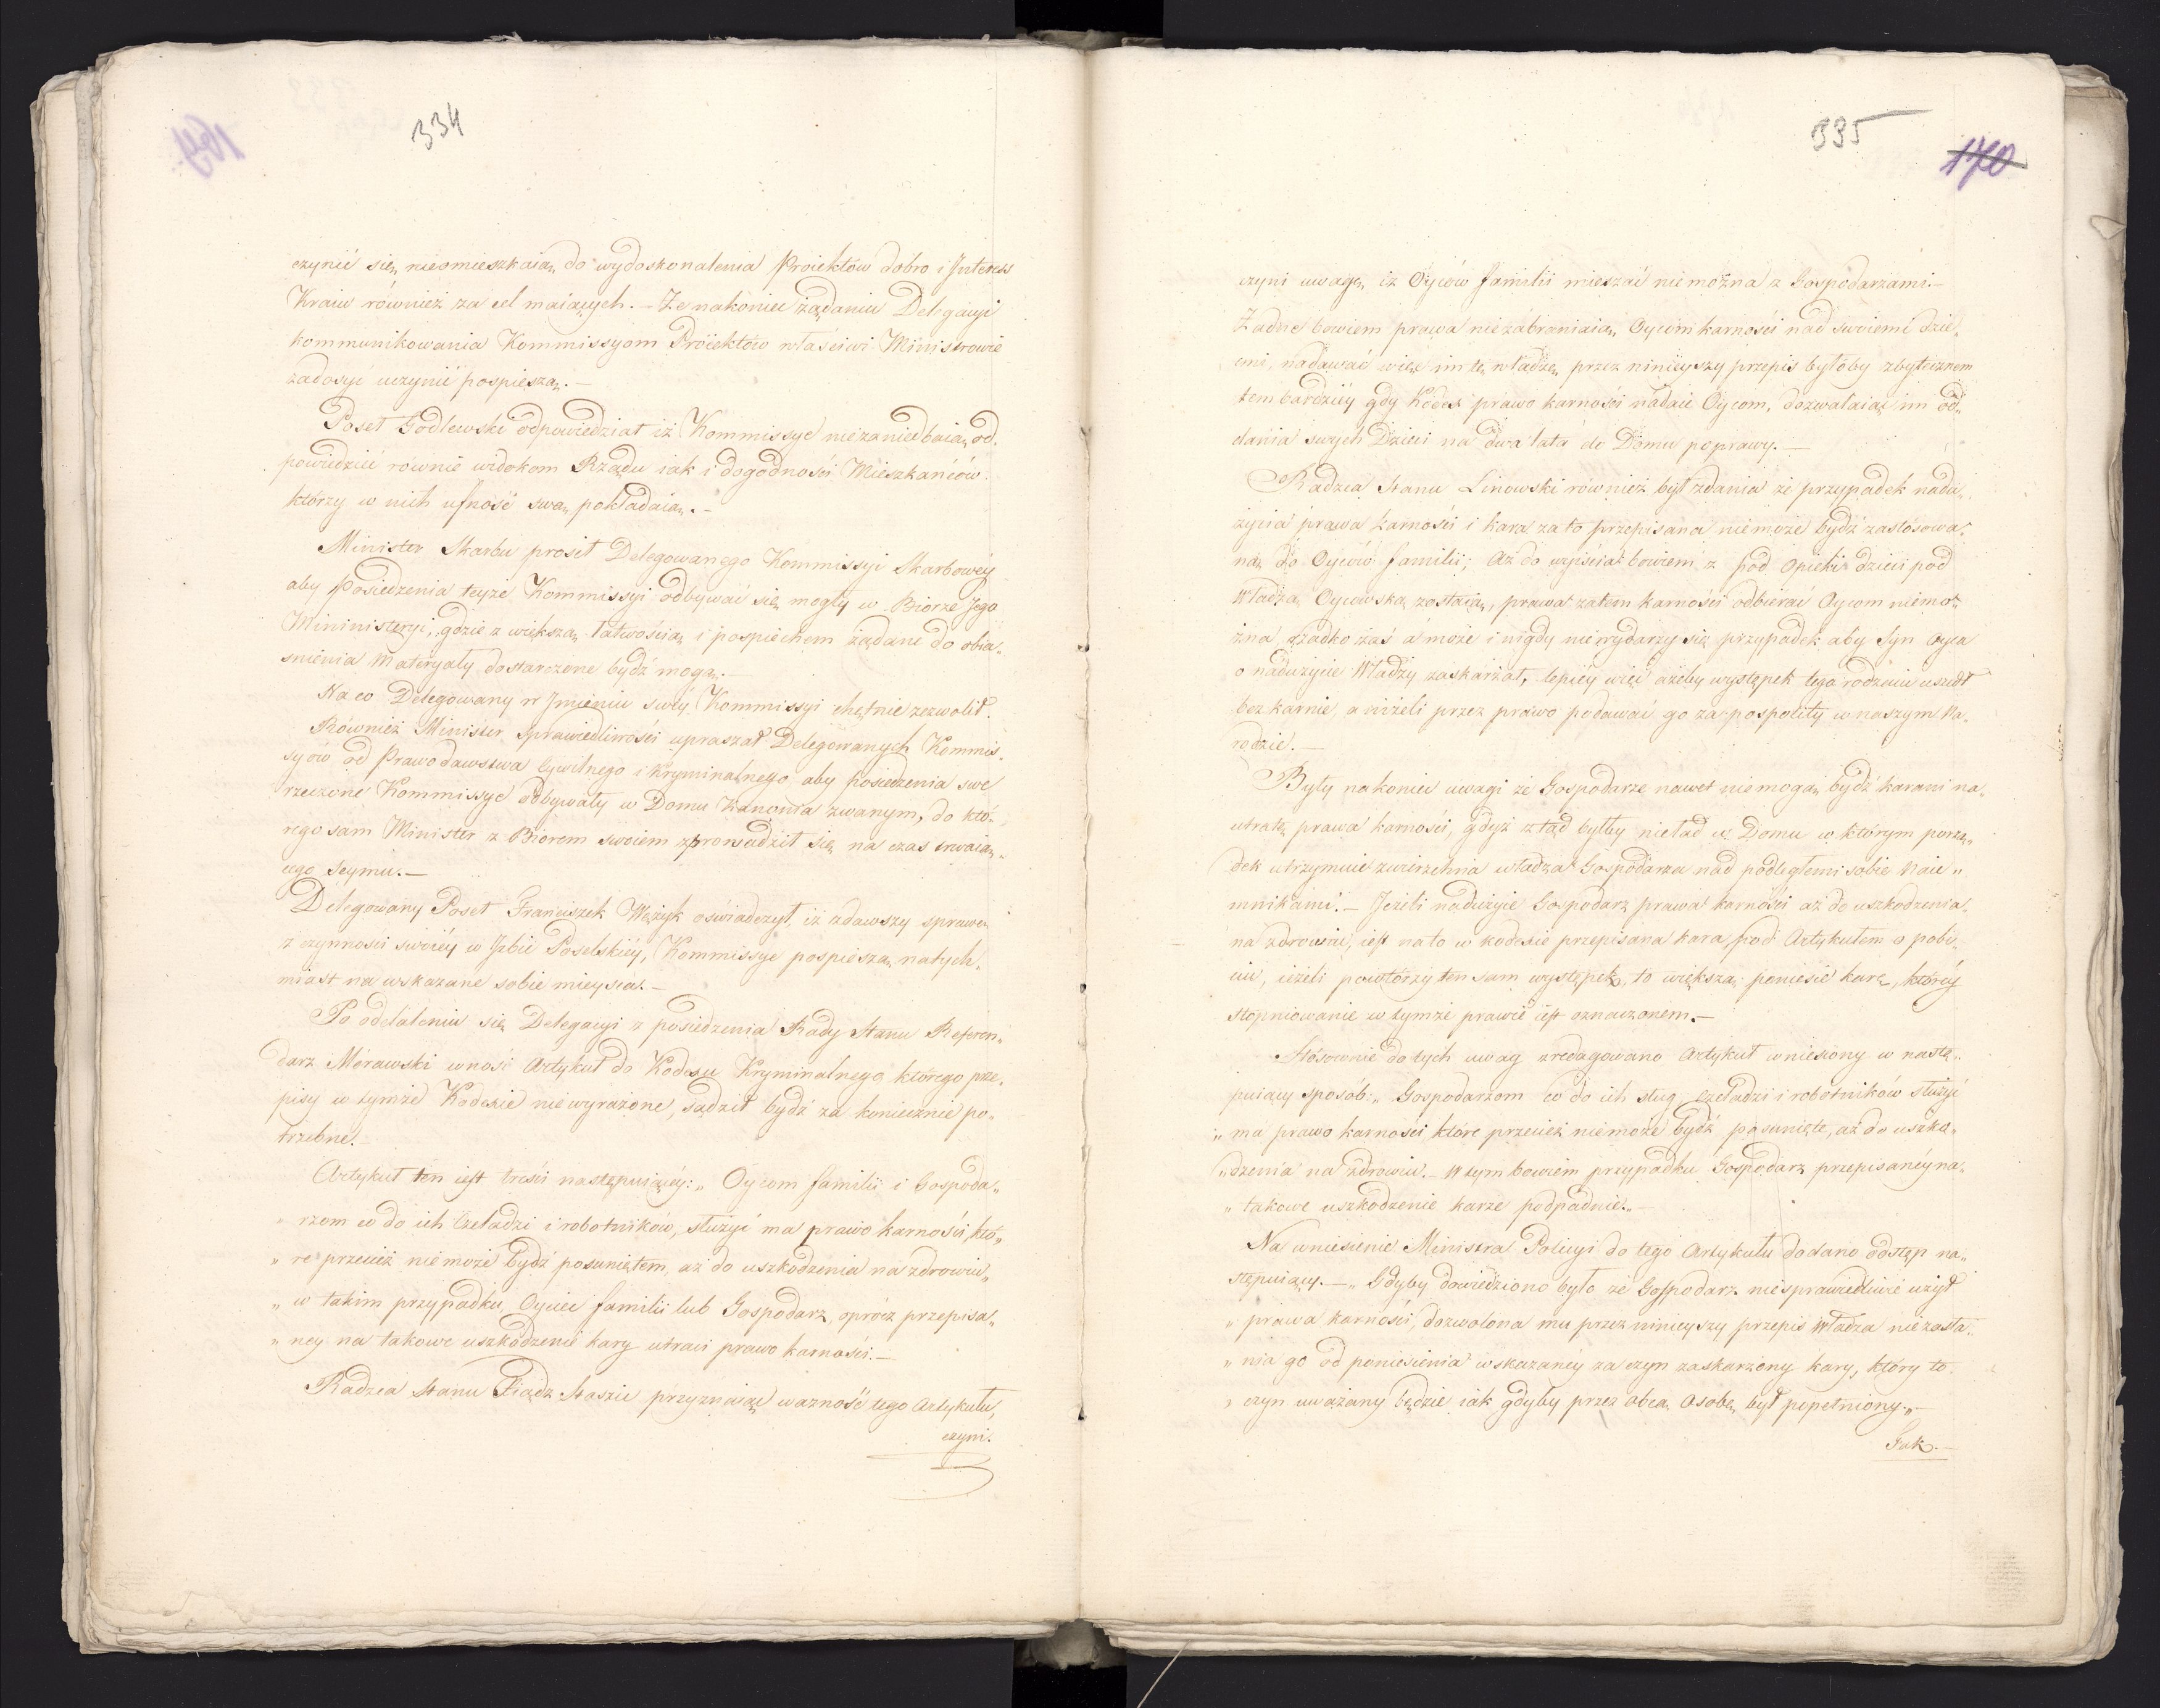 334
czynić się nieomieszkaią do wydoskonalenia Proiektów dobro i Interess
Kraiu również za cel maiących. — Ze nakoniec żądaniu Delegacyi
kommunikowania Kommissyom Proiektów właściwi Ministrowie
zadosyć uczynić pospieszą. —
Poseł Godlewski odpowiedział iż Kommissye niezaniedbaią od„
powiedzieć równie widokom Rządu iak i dogodności Mieszkańców
którzy w nich ufność swą pokładaią. —
Minister Skarbu prosił Delegowanego Kommissyi Skarbowéy
aby Posiedzenia teyże Kommissyi odbywać się mogły w Biorze Jego
Mininisteryi, gdzie z większą łatwością i pospiechem żądane do obia„
snienia Materyały dostarczone bydź mogą. —
Na co Delegowany w Jmieniu swéy Kommissyi chętnie zezwolił.
Również Minister Sprawiedliwości upraszał Delegowanych Kommis„
syów od Prawodawstwa Cywilnego i Kryminalnego aby posiedzenia swe
rzeczone Kommissye odbywały w Domu Kanonia zwanym, do któ„
rego sam Minister z Biorem swoiem zprowadził się na czas trwaią„
cego Seymu. —
Delegowany Poseł Franciszek Wężyk oswiadczył, iż zdawszy sprawę
z czynnosci swoiéy w Jzbie Poselskiéy, Kommissye pospieszą natych„
miast na wskazane sobie mieysca. —
Po oddaleniu się Delegacyi z posiedzenia Rady Stanu Referen„
darz Morawski wnosi Artykuł do Kodexu Kryminalnego którego prze„
pisy w tymże Kodexie niewyrażone, sądził bydź za koniecznie po„
trzebne. —
Artykuł ten iest treści następuiącéy: „ Oycom familii i Gospoda„
„ rzom co do ich Czeladzi i robotników, służyć ma prawo karności, któ„
„ re przecież niemoże bydź posuniętem, aż do uszkodzenia na zdrowiu„
„ w takim przypadku Oyciec familii lub Gospodarz, oprócz przepisa„
„ ney na takowe uszkodzenie kary utraci prawo karności. —
Radzca Stanu Xiądz Staszic przyznaiąc ważność tego Artykułu,
czyni.
335
170
czyni uwagę, iż Oyców familii mieszać niemożna z Gospodarzami. —
Żadne bowiem prawa niezabraniaią Oycom karności nad swoiemi dzie„
cmi, nadawać więc im tę władzę przez ninieyszy przepis byłoby zbytecznem
tem bardziéy gdy Kodex prawo karności nadaie Oycom, dozwalaiąc im od„
dania swych Dzieci na dwa lata do Domu poprawy. —
Radzca Stanu Linowski również był zdania że przypadek nadu„
życia prawa karności i kara za to przepisana niemoże bydź zastosowa„
ną do Oyców familii; Aż do wyiścia bowiem z pod opieki dzieci pod
Władzą Oycowską zostaią, prawa zatem karności odbierać Oycom niemo„
żna, rzadko zaś a może i nigdy niewydarzy się przypadek aby Syn Oyca
o nadużycie Władzy zaskarżał, lepiéy więc ażeby występek tego rodzaiu uszedł
bezkarnie, a niżeli przez prawo podawać go za pospolity w naszym Na„
rodzie. —
Były nakoniec uwagi że Gospodarze nawet niemogą bydź karani na„
utratę prawa karności, gdyż ztąd byłby nieład w Domu w którym porzą„
dek utrzymuie zwierzchnia władza Gospodarza nad podległemi sobie Naie„
mnikami. — Jeżeli nadużyie Gospodarz prawa karności aż do uszkodzenia
na zdrowiu, iest na to w kodexie przepisana kara pod Artykułem o pobi„
ciu, ieżeli powtórzy ten sam występek, to większą poniesie karę, któréy
stopniowanie w tymże prawie iest oznaczonem. —
Stósownie do tych uwag zredagowano Artykuł wniesiony w nastę„
puiący sposób: „ Gospodarzom co do ich sług czeladzi i robotników służyć
„ ma prawo karności które przecież niemoże bydź posunięte, aż do uszko„
„ dzenia na zdrowiu. — W tym bowiem przypadku Gospodarz przepisanéy na„
„ takowe uszkodzenie karze podpadnie.„ —
Na wniesienie Ministra Policyi do tego Artykułu dodano odstęp na„
stępuiący. — „ Gdyby dowiedziono było że Gospodarz niesprawiedliwie użył
„ prawa karności, dozwolona mu przez ninieyszy przepis Władza niezasła„
„ nia go od poniesienia wskazanéy za czyn zaskarżony kary, który to
„ czyn uważany będzie iak gdyby przez obcą Osobę był popełniony.„ —
Jak. —